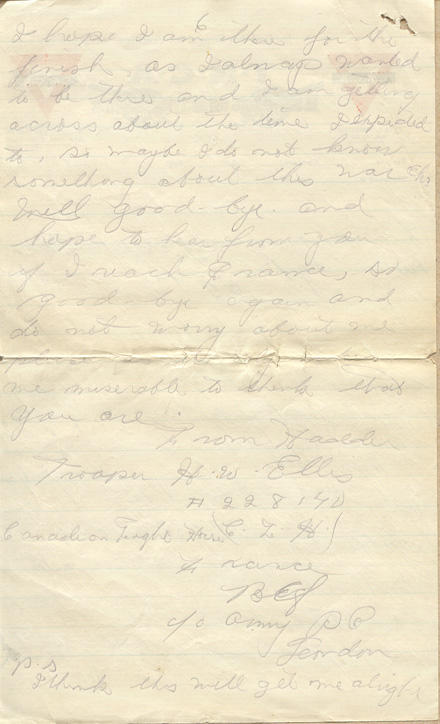 6
I hope I am there for the
finish, as I always wanted
to be there and I am getting
across about the time I expected
to, so maybe I do not know
something about this war eh
Well good-bye and
hope to hear from you
if I reach France, so
good-bye again and
do not worry about me
me miserable to think that
you are.
From
Trooper H.W. Ellis
# 228140
Canadian Light Horse (C.L.H.)
France
BEF
c/o Army P.O
London
p.s
I think this will get me alright